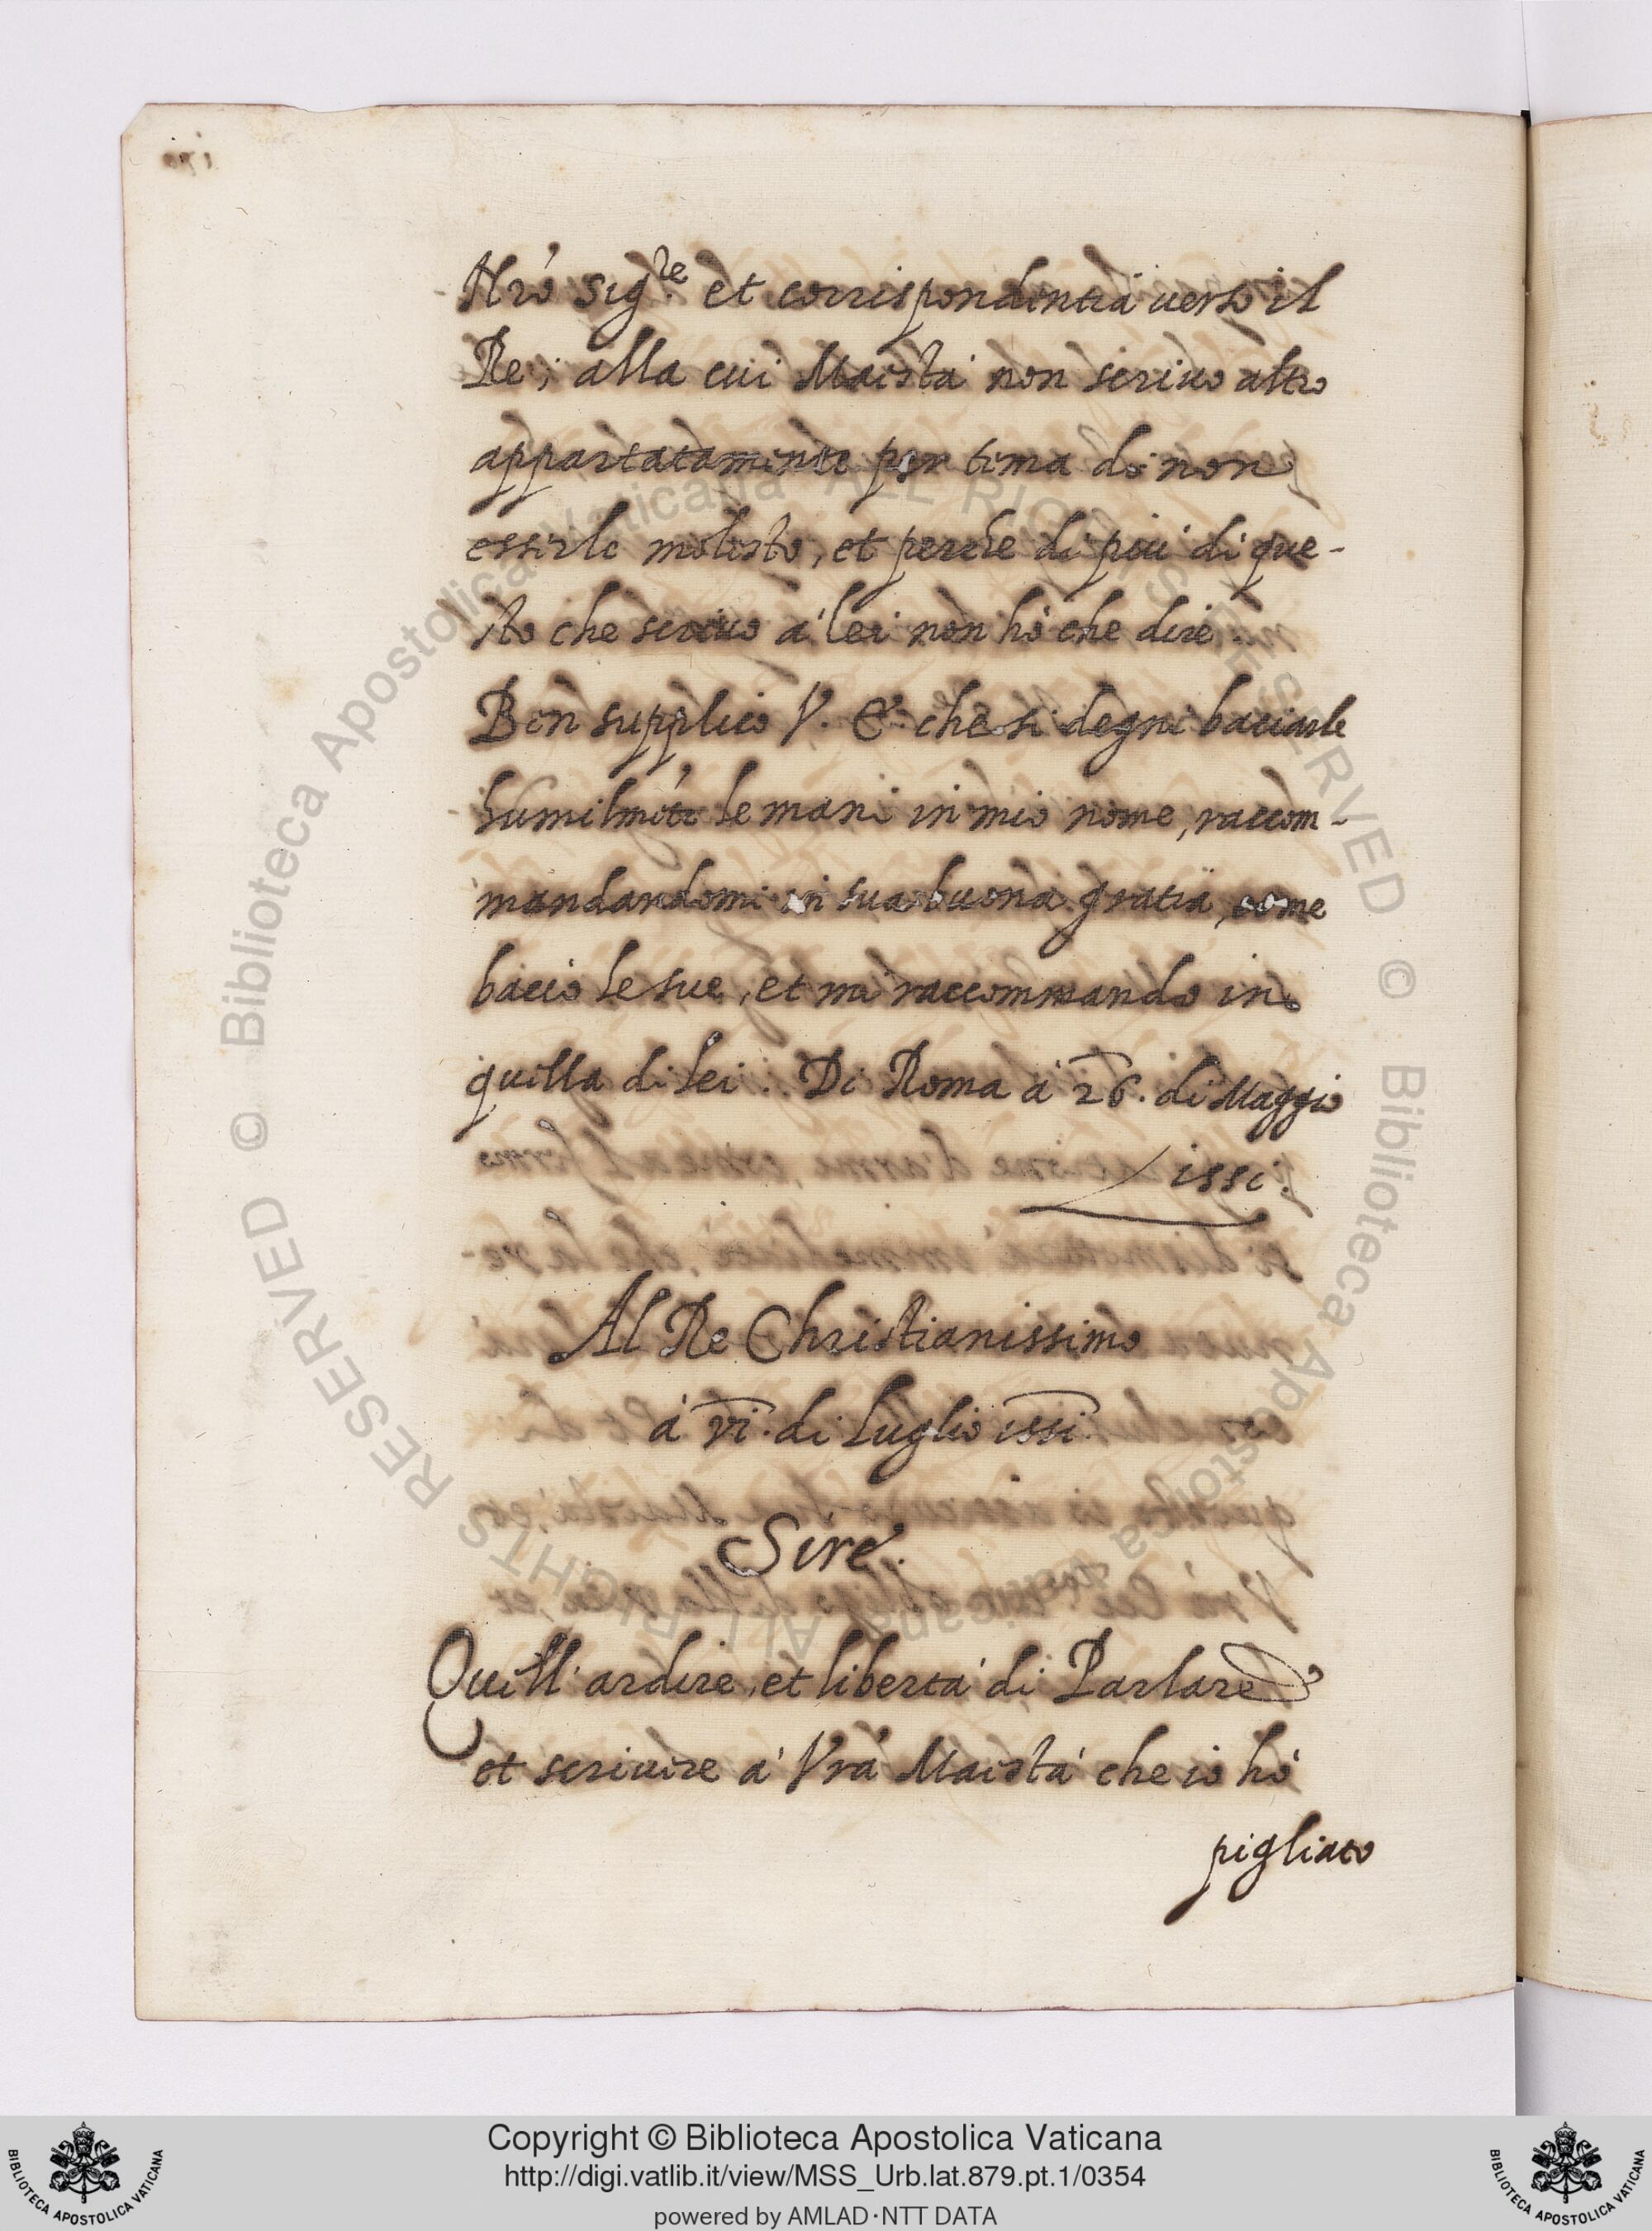 Nrõ Sig.re et corrispondentia verso il
Re; alla cui Maestà non scrivo altro
appartatamente per tema di non
esserle molesto, et perche di più di que-
sto che scrivo à lei non hò che dire.
Ben supplico V. E. che si degni baciarle
humilmẽte le mani in mio nome, raccom-
mandandomi in sua buona gratia, come
bacio le sue, et mi raccommando in
quella di lei. Di Roma à 26. di Maggio
1551.
Al Re Christianissimo
à VI. di Luglio 1551.
Sire.
Quell'ardire, et libertà di Parlare
et scrivere à Vrã Maestà che io hò
pigliato
© Biblioteca Apostolica Vaticana ALL RIGHTS RESERVED © Biblioteca Apostolica Vaticana ALL RIGHTS RESERVED
Copyright © Biblioteca Apostolica Vaticana
http://digi.vatlib.it/view/MSS_Urb.lat.879.pt.1/0354
powered by AMLAD·NTT DATA
BIBLIOTECA APOSTOLICA VATICANA
BIBLIOTECA APOSTOLICA VATICANA